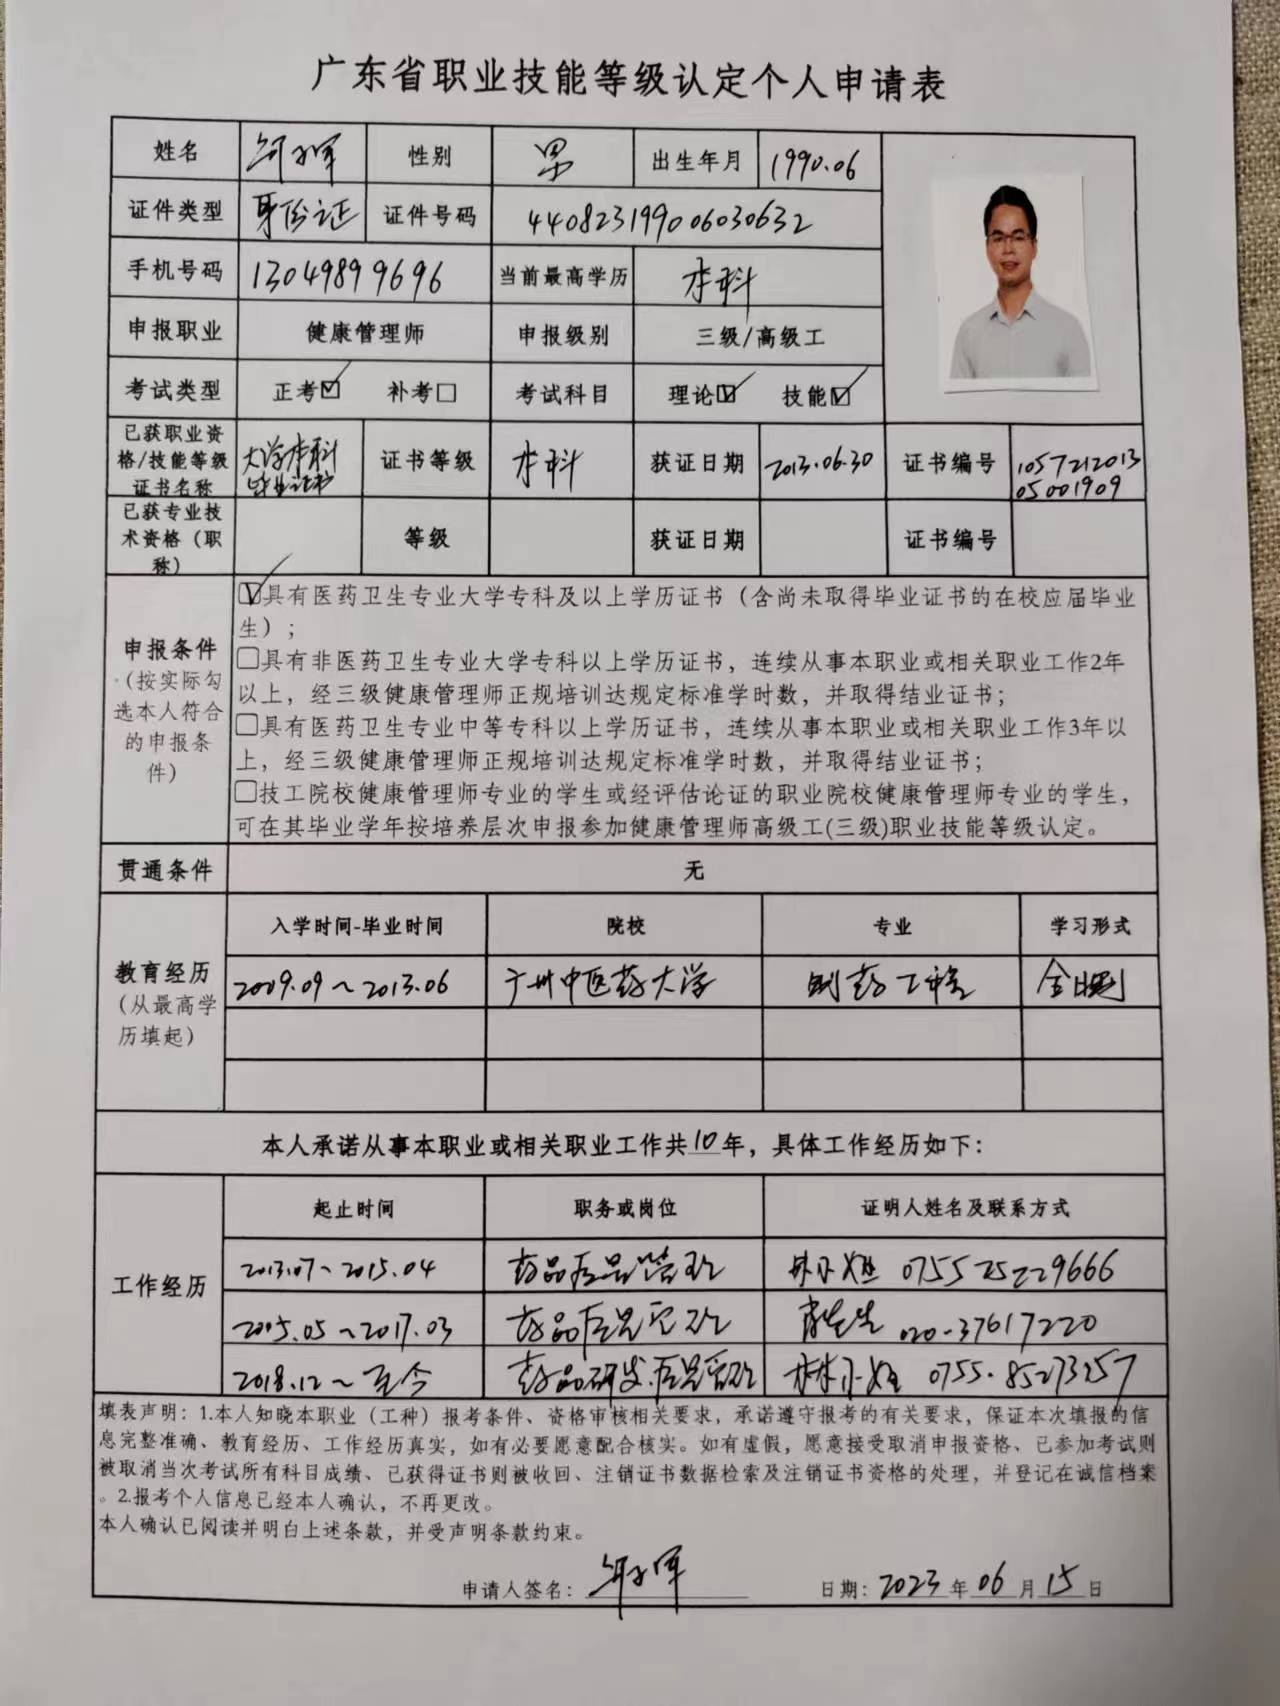 广东省职业技能等级认定个人申请表
姓名 性别 男 出生年月 1990.06
证件类型 身份证 证件号码 440823199006030632
手机号码 13049899696 当前最高学历 本科
申报职业 健康管理师 申报级别 三级/高级工
考试类型 正考☑ 补考□ 考试科目 理论☑ 技能☑
已获职业资格/技能等级证书名称 大学本科毕业证书 证书等级 本科 获证日期 2013.06.30 证书编号 105721201305001909
已获专业技术资格（职称） 等级 获证日期 证书编号
申报条件
（按实际勾选本人符合的申报条件）
☑具有医药卫生专业大学专科及以上学历证书（含尚未取得毕业证书的在校应届毕业
生）；
□具有非医药卫生专业大学专科以上学历证书，连续从事本职业或相关职业工作2年
以上，经三级健康管理师正规培训达规定标准学时数，并取得结业证书；
□具有医药卫生专业中等专科以上学历证书，连续从事本职业或相关职业工作3年以
上，经三级健康管理师正规培训达规定标准学时数，并取得结业证书；
□技工院校健康管理师专业的学生或经评估论证的职业院校健康管理师专业的学生，
可在其毕业学年按培养层次申报参加健康管理师高级工(三级)职业技能等级认定。
贯通条件 无
教育经历
（从最高学历填起）
入学时间-毕业时间 院校 专业 学习形式
2009.09～2013.06 广州中医药大学 制药工程 全日制
本人承诺从事本职业或相关职业工作共10年，具体工作经历如下：
工作经历
起止时间 职务或岗位 证明人姓名及联系方式
2013.07～2015.04 药品质量管理 林小姐 0755 25229666
2015.05～2017.03 药品质量管理 肖先生 020-37617220
2018.12～至今 药品研发、质量管理 林小姐 0755-85273257
填表声明：1.本人知晓本职业（工种）报考条件、资格审核相关要求，承诺遵守报考的有关要求，保证本次填报的信
息完整准确、教育经历、工作经历真实，如有必要愿意配合核实。如有虚假，愿意接受取消申报资格、已参加考试则
被取消当次考试所有科目成绩、已获得证书则被收回、注销证书数据检索及注销证书资格的处理，并登记在诚信档案
。2.报考个人信息已经本人确认，不再更改。
本人确认已阅读并明白上述条款，并受声明条款约束。
申请人签名： 日期：2023年06月15日